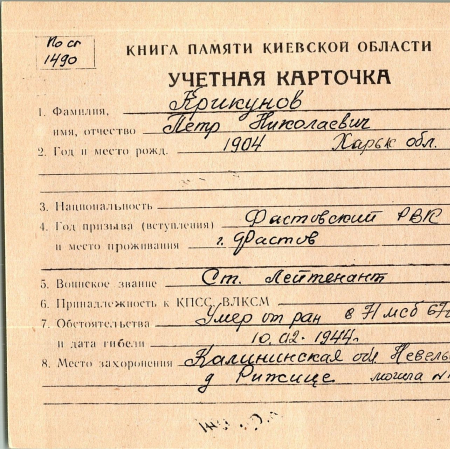 По сп
1490
КНИГА ПАМЯТИ КИЕВСКОЙ ОБЛАСТИ
УЧЕТНАЯ КАРТОЧКА
1. Фамилия, Крикунов
имя, отчество Петр Николаевич
2. Год и место рожд. 1904 Харьк обл.
3. Национальность
4. Год призыва (вступления) Фастовский РВК
и место проживания г. Фастов
5. Воинское звание Ст. Лейтенант
6. Принадлежность к КПСС, ВЛКСМ
7. Обстоятельства Умер от ран в 71 мсб 67
и дата гибели 10.02.1944г
8. Место захоронения Калининская обл Невель
д Рижице могила №